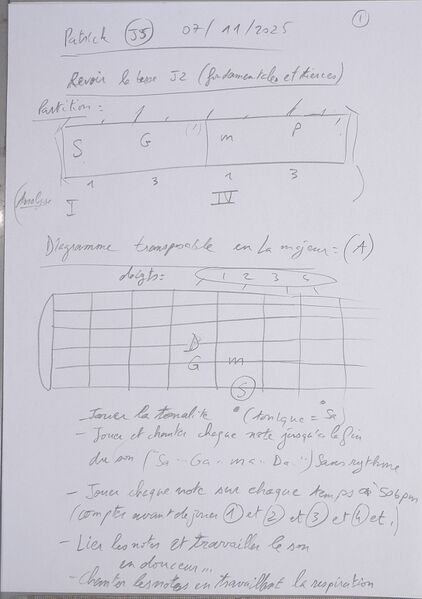 ①
Patrick J5 07/11/2025
Revoir la basse J2 (fondamentales et tierces)
Partition:
S G m P
1 3 1 3
(Analyse I IV
Diagramme transposable en La majeur = (A)
doigts: 1 2 3 4
D
G m
S
- Jouer la tonalité (tonique = Sa
- Jouer et chanter chaque note jusqu'à la fin
du son ("Sa .. Ga .. ma .. Da ..") Sans rythme
- Jouer chaque note sur chaque temps à 50 bpm
(compter avant de jouer ① et ② et ③ et ④ et ,)
- Lier les notes et travailler le son
en douceur...
- Chanter les notes en travaillant la respiration